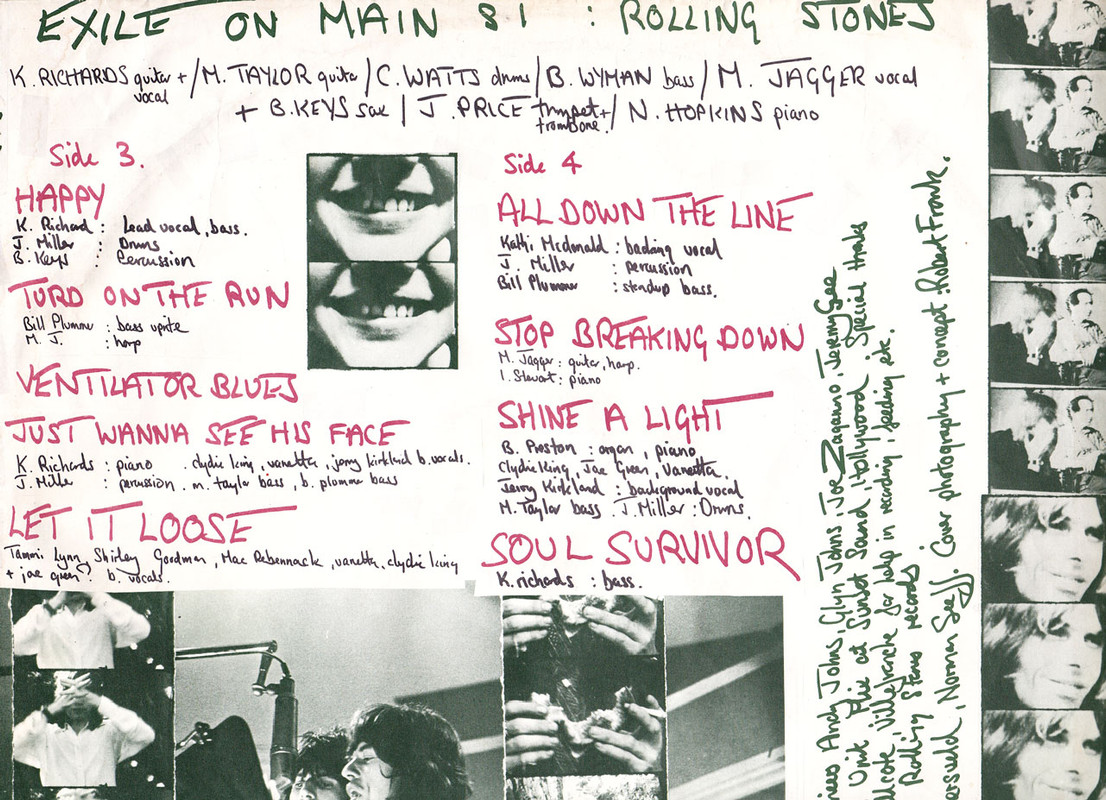 EXILE ON MAIN ST : ROLLING STONES
K. RICHARDS guitar + vocal / M. TAYLOR guitar / C. WATTS drums / B. WYMAN bass / M. JAGGER vocal
+ B. KEYS sax / J. PRICE trumpet + trombone. / N. HOPKINS piano
Side 3.
HAPPY
K. Richard : Lead vocal, bass.
J. Miller : Drums
B. Keys : Percussion
TURD ON THE RUN
Bill Plummer : bass uprite
M. J. : harp
VENTILATOR BLUES
JUST WANNA SEE HIS FACE
K. Richards : piano . clydie king, vanetta, jerry kirkland b. vocals.
J. Miller : percussion . m. taylor bass, b. plummer bass
LET IT LOOSE
Tammi Lynn, Shirley Goodman, Mac Rebennack, vanetta, clydie king
+ joe green : b. vocals.
Side 4
ALL DOWN THE LINE
Kathi Mcdonald : backing vocal
J. Miller : percussion
Bill Plummer : standup bass.
STOP BREAKING DOWN
M. Jagger : guitar, harp.
I. Stewart : piano
SHINE A LIGHT
B. Preston : organ, piano
Clydie King, Joe Green, Vanetta.
Jerry Kirkland : background vocal
M. Taylor bass . J. Miller : Drums.
SOUL SURVIVOR
K. richards : bass.
Andy Johns, Glyn Johns, Joe Zaganno, Jeremy Gee
Unit at Sunset Sound, Hollywood. Special thanks
Villefranche for help in recording, feeding etc.
Rolling Stones records
Norman Seeff. Cover photography + concept : Robert Frank.